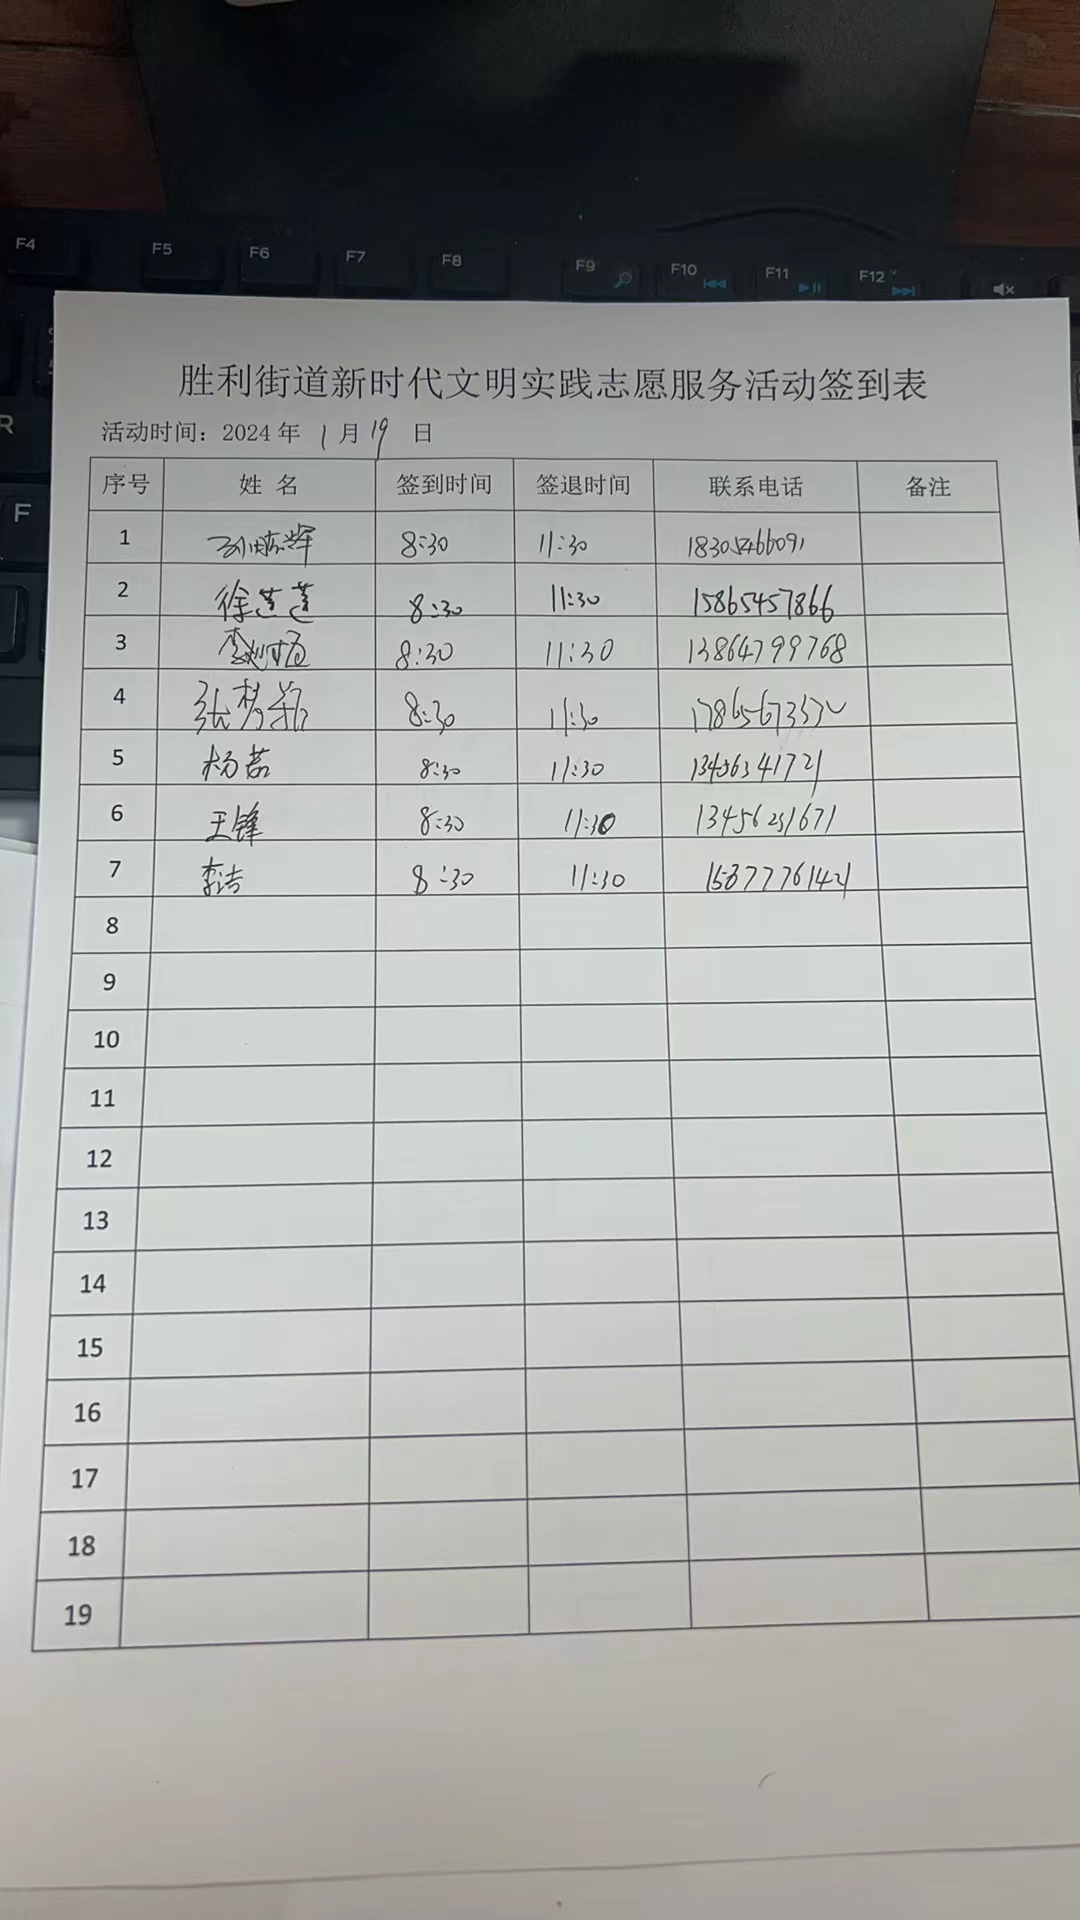 F4 F5 F6 F7 F8 F9 F10 F11 F12
R
F
胜利街道新时代文明实践志愿服务活动签到表
活动时间：2024 年 1 月 19 日
序号 姓 名 签到时间 签退时间 联系电话 备注
1 8:30 11:30 18305466091
2 徐莲莲 8:30 11:30 15865457866
3 8:30 11:30 13864799768
4 张梦颖 8:30 11:30
5 杨茹 8:30 11:30 13456341721
6 王锋 8:30 11:30 13456251671
7 李洁 8:30 11:30 15877761421
8
9
10
11
12
13
14
15
16
17
18
19